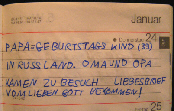 Januar
Donnerstag 24
PAPA-GEBURTSTAGSKIND (33)
IN RUSSLAND. OMA UND OPA
KAMEN ZU BESUCH LIEBESBRIEF
VOM LIEBEN GOTT BEKOMMEN!
25